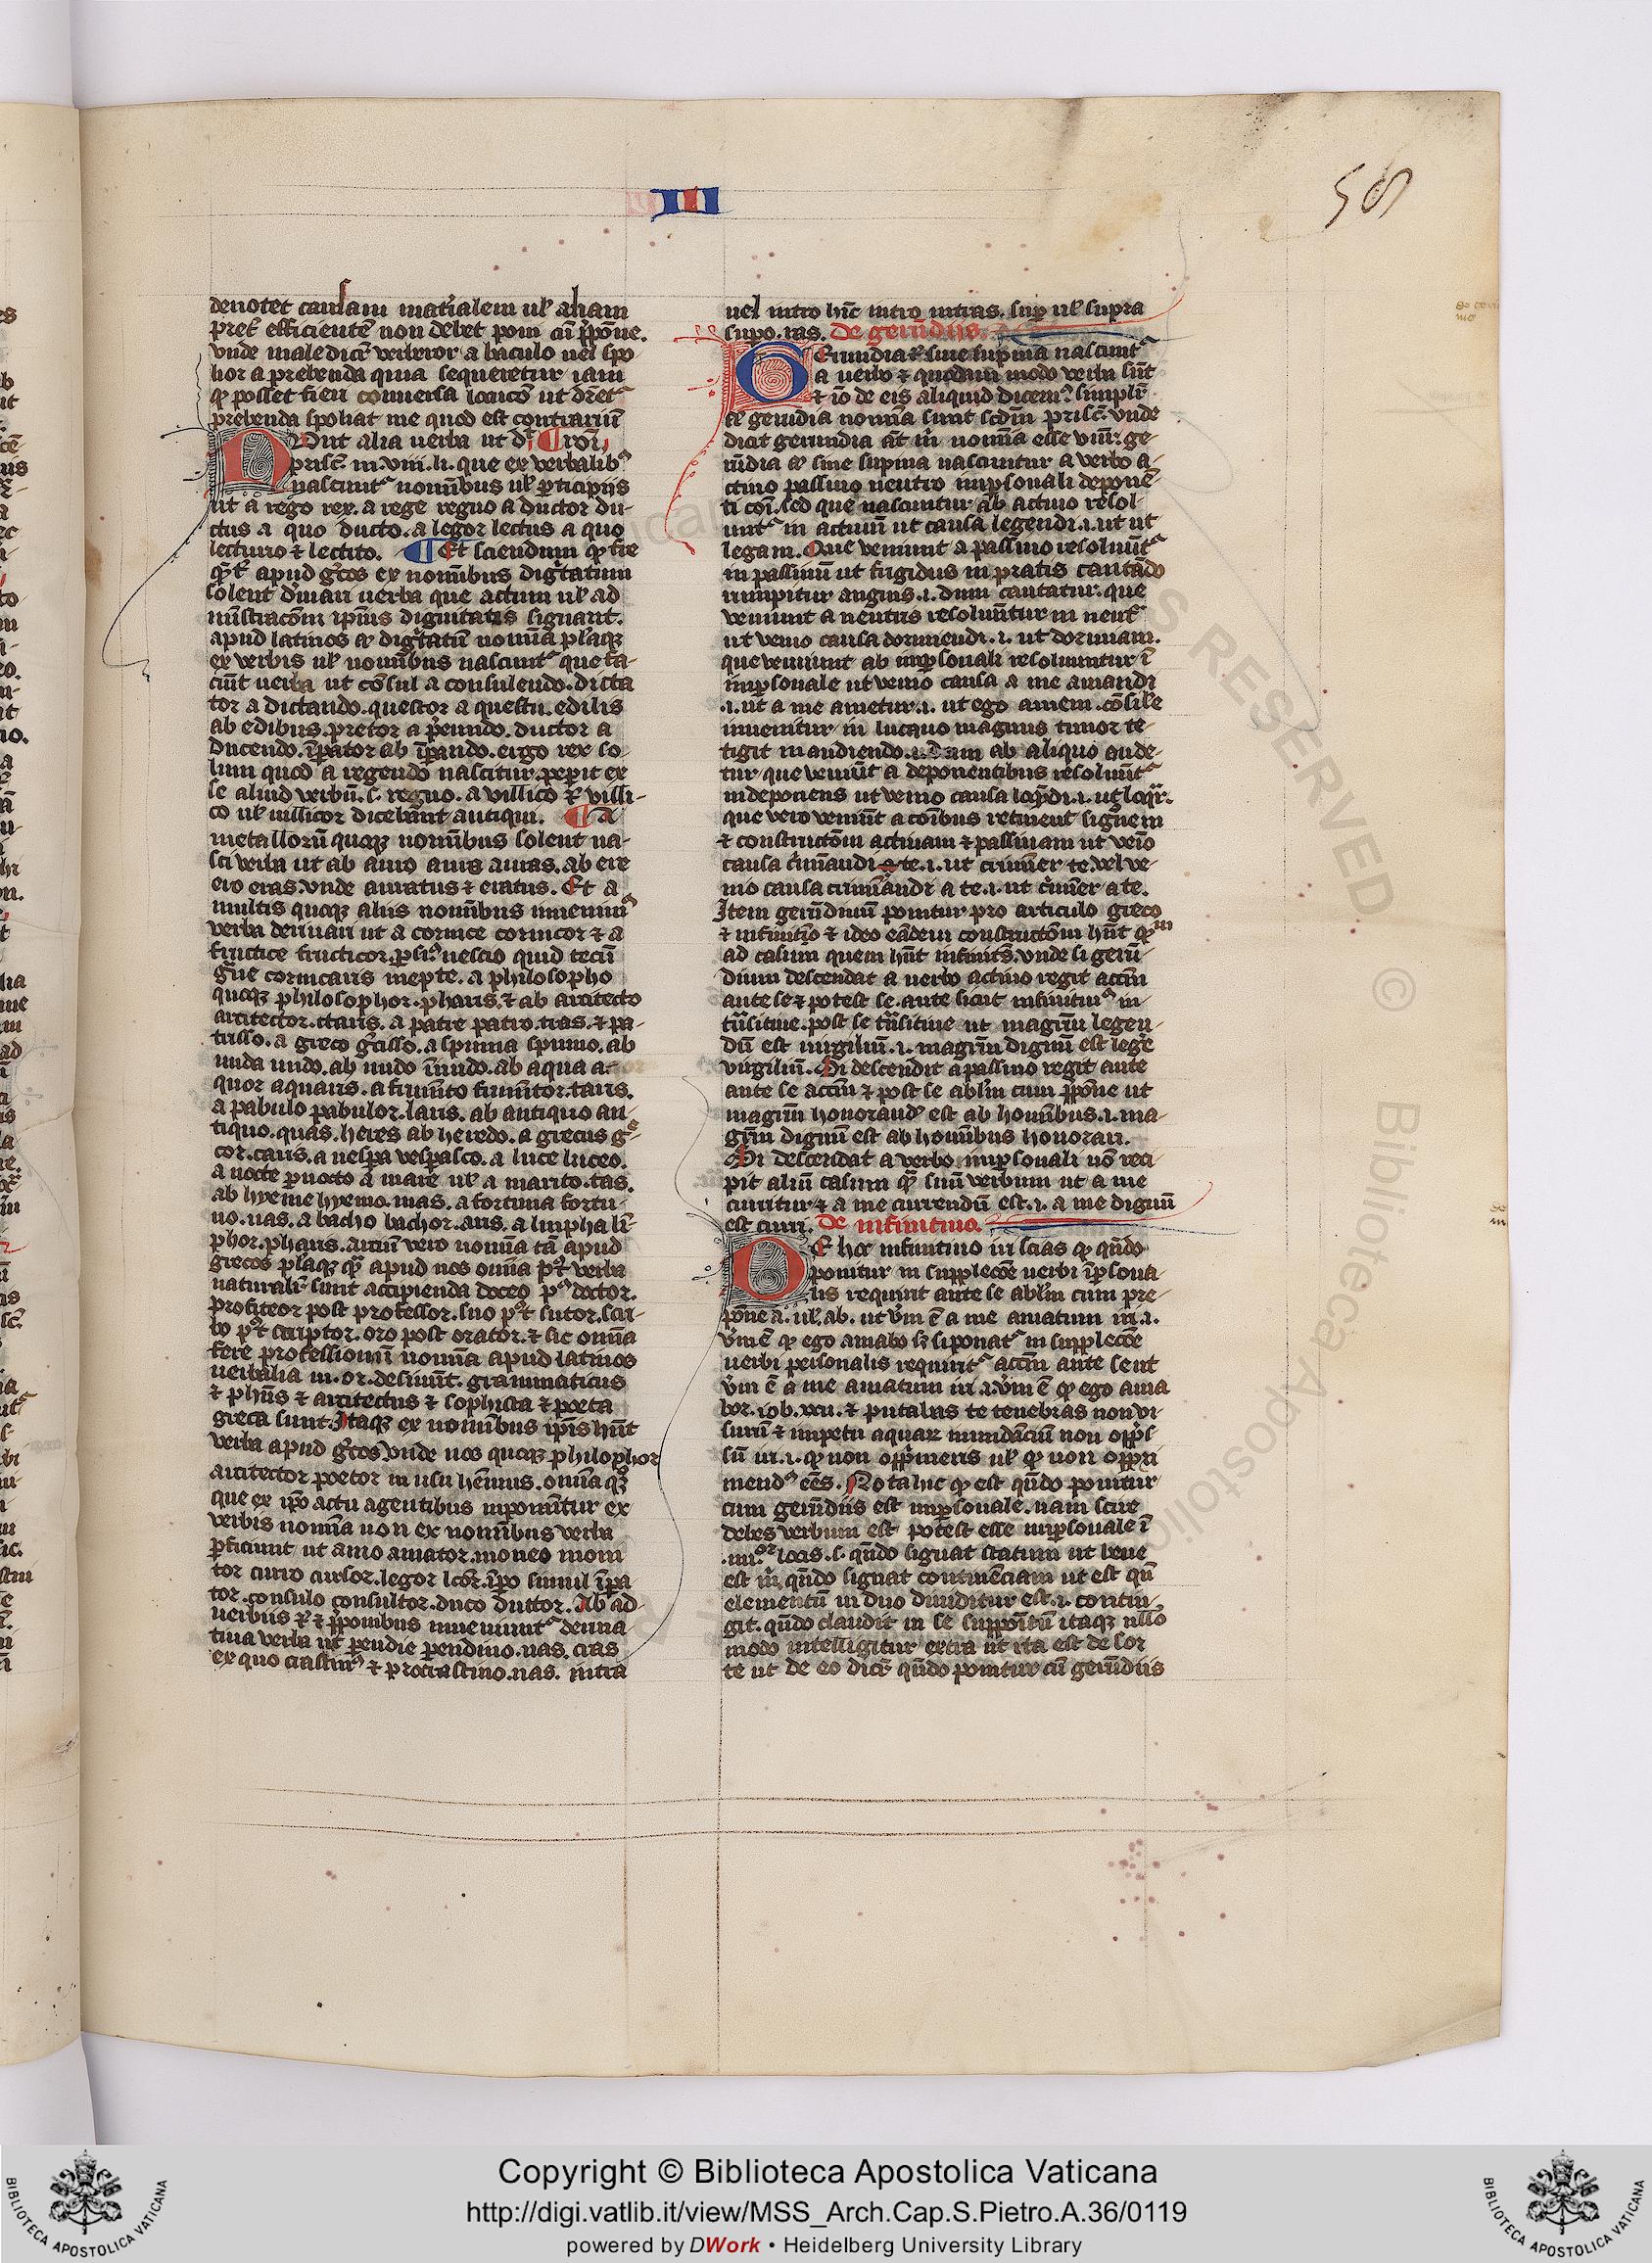 III
58
denotet causam mat'ialem ul' aliam
pret' efficientē non debet poni cū p̄pōne.
vnde male dicit' verberor a baculo uel spo
lior a prebenda quia sequeretur iam
ꝙ posset fieri conuersa locucō ut dr̄et᷑
prebenda spoliat me quod est contrariū
Sunt alia uerba ut d'r
prisc̄. in .viii. li. que ex verbalib᷒
nascunt᷑ nomībus ul' ꝑticipijs
ut a rego rex. a rege regno a ductor du-
ctus a quo ducto. a legor lectus a quo
lecturio ⁊ lectito. ¶ Et sciendum ꝙ fre
apud gc̄os ex nomībus dignitatum
solent diriuari uerba que actum ul' ad
ministracōm ip̄ius dignitatis signant.
apud latinos dignitatū nomīa pleraqꝫ
ex verbis ul' nomībus nascunt᷑ que fa-
ciūt uerba ut cōsul a consulendo. dicta
tor a dictando. questor a questu. edilis
ab edibus. pretor a p̄eundo. ductor a
ducendo. īꝑator ab īꝑando. ergo rex so-
lum quod a regendo nascitur. peperit ex
se aliud verbū. s. regno. a villico villi-
co ul' uillicor dicebant antiqui. ¶ A
metallorū quoqꝫ nomībus solent na-
sci verba ut ab auro auris auras. ab ere
ero eras. vnde auratus ⁊ eratus. Et a
multis quoqꝫ aliis nomībus inueniūt᷑
verba deriuari ut a cornice cornicor ⁊ a
fruttice frutticor. ꝑsi᷒. nescio quid tecū
gue cornicaris inepte. a philosopho
quoqꝫ philosophor. pharis. ⁊ ab arcitecto
arcitector. ctaris. a patre patro. tras. ⁊ pa-
trisso. a greco gc̄isso. a spuma spumo. ab
unda undo. ab nudo inundo. ab aqua a-
quor aquaris. a frumēto frumētor. taris.
a pabulo pabulor. laris. ab antiquo an-
tiquo. quas. heres ab heredo. a grecus g̃-
cor. caris. a uespa vesperasco. a luce luceo.
a nocte pernocto a mare ul' a marito. tas.
ab hyeme hyemo. mas. a fortuna fortu-
no. nas. a bacho bachor. aris. a linpha lī-
phor. pharis. artiū vero nomīa tā apud
grecos pleraqꝫ apud nos omīa verba
naturalit' sunt accipienda doceo post doctor.
profiteor post professor. suo post sutor. scri-
bo post scriptor. oro post orator. ⁊ sic omīa
fere professionū nomīa apud latinos
uerbalia in. or. desinūt. gramaticus
⁊ phūs ⁊ arcitectus ⁊ sophista ⁊ poeta
greca sunt. Itaqꝫ ex nomībus ip̄is hn̄t
verba apud gc̄os. vnde nos quoqꝫ philosophor
arcitector poetor in usu hēmus. omīa
que ex ip̄o actu agentibus inponūtur ex
verbis nomīa non ex nomībus verba
ꝑficiunt ut amo amator. moneo moni
tor curro cursor. legor lector. īꝑo simul īꝑa-
tor. consulo consultor. duco ductor. Ab ad-
uerbiis ⁊ p̄ponibus inueniunt᷑ deriua
tiua verba ut perendie perendino. nas. cras
ex quo crastin᷒ ⁊ procrastino. nas. intra
uel intro hīc intro intras. sup ul' supra
supo. ras. de gerūdijs.
Gerundia siue supina nascunt᷑
a uerbo ⁊ quodam modo verba sūt
⁊ iō de eis aliquid dicem᷒. simplr̄
gerūdia nomīa sunt scdm̄ prisc̄. vnde
dicit gerundia nomīa esse ge-
rūdia siue supina nascuntur a verbo a-
ctiuo passiuo neutro inpersonali deponē
ti cōi. sed que nascuntur ab actiuo resol-
uunt᷑ in actiuū ut causa legendi .i. ut
legam. Que veniunt a passiuo resoluūt᷑
in passiuū ut frigidus in pratis cantādo
rumpitur anguis .i. dum cantatur. que
veniunt a neutris resoluūtur in neut᷑
ut venio causa dormiendi .i. ut dormiam.
que veniunt ab inpersonali resoluuntur ī
inpersonale ut venio causa a me amandi
.i. ut a me ametur .i. ut ego amem. cōsile
inuenitur in lucano magnus timor te-
tigit in audiendo .i. dum ab aliquo aude-
tur que veniūt a deponentibus resoluūt᷑
in deponens ut venio causa loquēdi .i. ut loquar.
que vero veniūt a cōibus retinent signem
⁊ constructōm actiuam ⁊ passiuam ut venio
causa crimīandi te .i. ut criminer te. vel ve-
nio causa crimīandi a te .i. ut criminer a te.
Item gerūdiuū ponitur pro articulo greco
⁊ infinitiuo ⁊ ideo eādem constructōm hn̄t
ad casum quem hn̄t infinitiuus. vnde si gerū-
dium descendat a uerbo actiuo regit acctm
ante se ⁊ potest se. ante sicut infinitiu᷒ in-
transitiue. post se transitiue ut magistrum legen-
dū est uirgiliū .i. magistrum dignū est lege
virgiliū. Si descendit a passiuo regit ante
ante se acctm ⁊ post se ablm cum p̄pōne ut
magistrum honorand᷒ est ab homībus .i. ma-
gistrum dignū est ab homībus honorari.
Si descendat a verbo inpersonali nō reci-
pit aliū casum suū verbum ut a me
curritur ⁊ a me currendū est .i. a me dignū
est curri. De infinitiuo.
De hoc infinitiuo iri scias ꝙ qn̄do
ponitur in supplecōe uerbi īpersona
lis requirit ante se ablm cum pre-
pōne a. ul'. ab. ut vm̄ ē a me amatum iri .i.
vm̄ ē ꝙ ego amabo si ponat᷑ in supplecōe
uerbi personalis requirit᷑ acctm ante se ut
vm̄ ē a me amatum iri .i. vm̄ ē ꝙ ego ama
bor. iob. xxii. ⁊ putabas te tenebras non vi-
surū ⁊ impetu aquarꝫ inundāciū non opp̄s-
sū iri .i. ꝙ non opprimeris ul' ꝙ non oppri
mend᷒ eēs. Nota hic ꝙ est qn̄do ponitur
cum gerūdiis est inpersonale. nam scire
debes verbum est potest esse inpersonale ī
.iiii.or locis. s. qn̄do signat statum ut bene
est m̄. qn̄do signat continēciam ut est qn̄
elementū in duo diuiditur est .i. contin-
git. qn̄do claudit in se suppoītū itaqꝫ nll'o
modo intelligitur extra ut ita est de sor
te ut de eo dicit᷑ qn̄do ponitur cū gerūdiis
Copyright © Biblioteca Apostolica Vaticana
http://digi.vatlib.it/view/MSS_Arch.Cap.S.Pietro.A.36/0119
powered by DWork • Heidelberg University Library
BIBLIOTECA APOSTOLICA VATICANA
BIBLIOTECA APOSTOLICA VATICANA